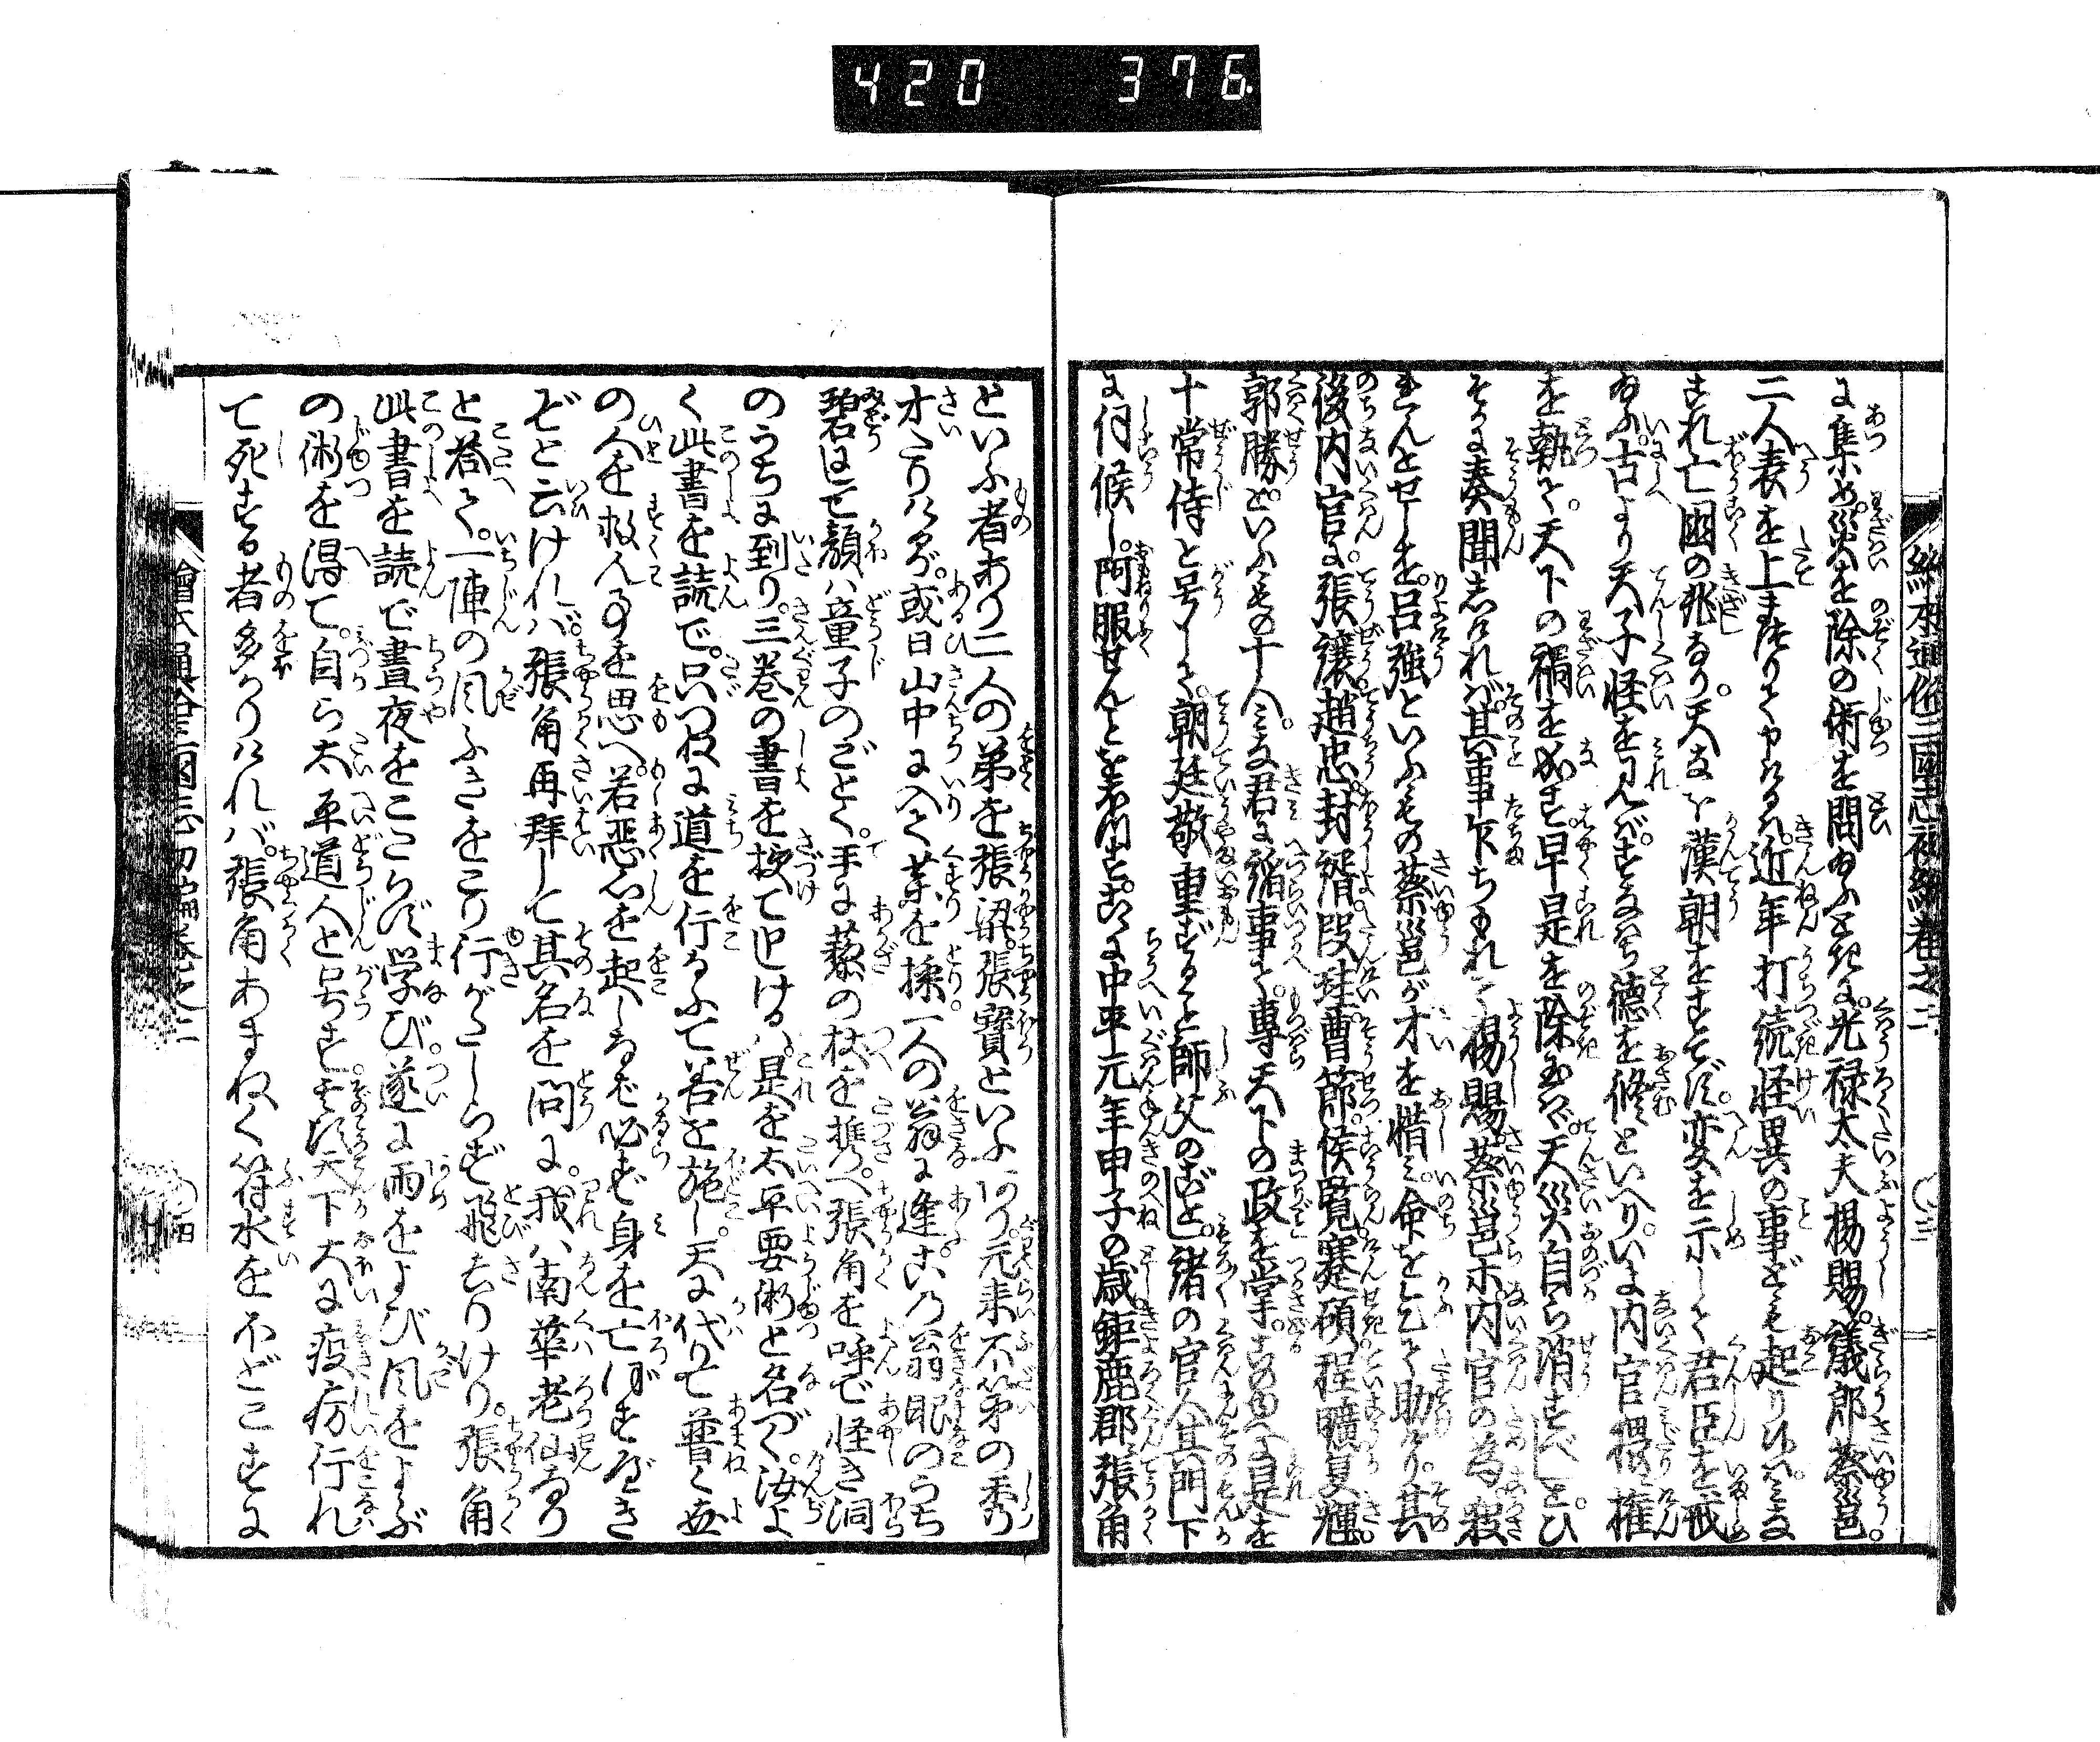 420 376
繪本通俗三國志初編卷之二
に集め災を除の術を問給ふときに光禄太夫楊賜議郎蔡邕
二人表を上まゐりて申ける近年打続怪異の事ども起り候ハみな
これ亡国の兆なり天なほ漢朝をすてず変を示して君臣を戒
給ふ古より天子怪を見ればすなはち徳を修といへりいま内官権
を執て天下の禍をなす早是を除玉ハヾ天災自ら消すべしとひ
そかに奏聞しけれバ其事乍ちもれて楊賜蔡邕ホ内官の為殺
れんとせしを呂強といふもの蔡邕が才を惜ミ命をこひて助けり其
後内官に張譲趙忠封諝段珪曹節侯覧蹇碩程曠夏輝
郭勝といふもの十人ミな君に諂事て専天下の政を掌このゆへに是を
十常侍と号して朝廷敬重ずること師父のごとし諸の官人其門下
に伺候し阿服せんとを
中平元年甲子の歳鉅鹿郡張角
といふ者あり二人の弟を張梁張寶といふ
元来不第の秀
才なりけるが或日山中に入て薬を採一人の翁に逢
翁眼のうち
碧にして顔ハ童子のごとく手に藜の杖を携へ張角を呼で怪き洞
のうちに到り三巻の書を授て曰けるハ是を太平要術と名づく汝よ
く此書を読で只つねに道を行ふて善を施し天に代りて普く世
の人を救んことを思へ若悪心を起しなば必ず身を亡ぼすべき
ぞと云けれバ張角再拝して其名を問に我ハ南華老仙なり
と答て一陣の風ふきをこり行がたしらず飛去りけり張角
此書を読で昼夜をこたらず学び遂に雨をよび風をよぶ
の術を得て自ら太平道人と号す其頃天下大に疫疠行れ
て死する者多かりけれバ張角あまねく符水をほどこすに
繪本通俗三國志初編卷之二
四